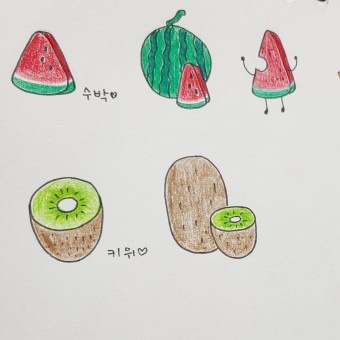 수박♡
키위♡